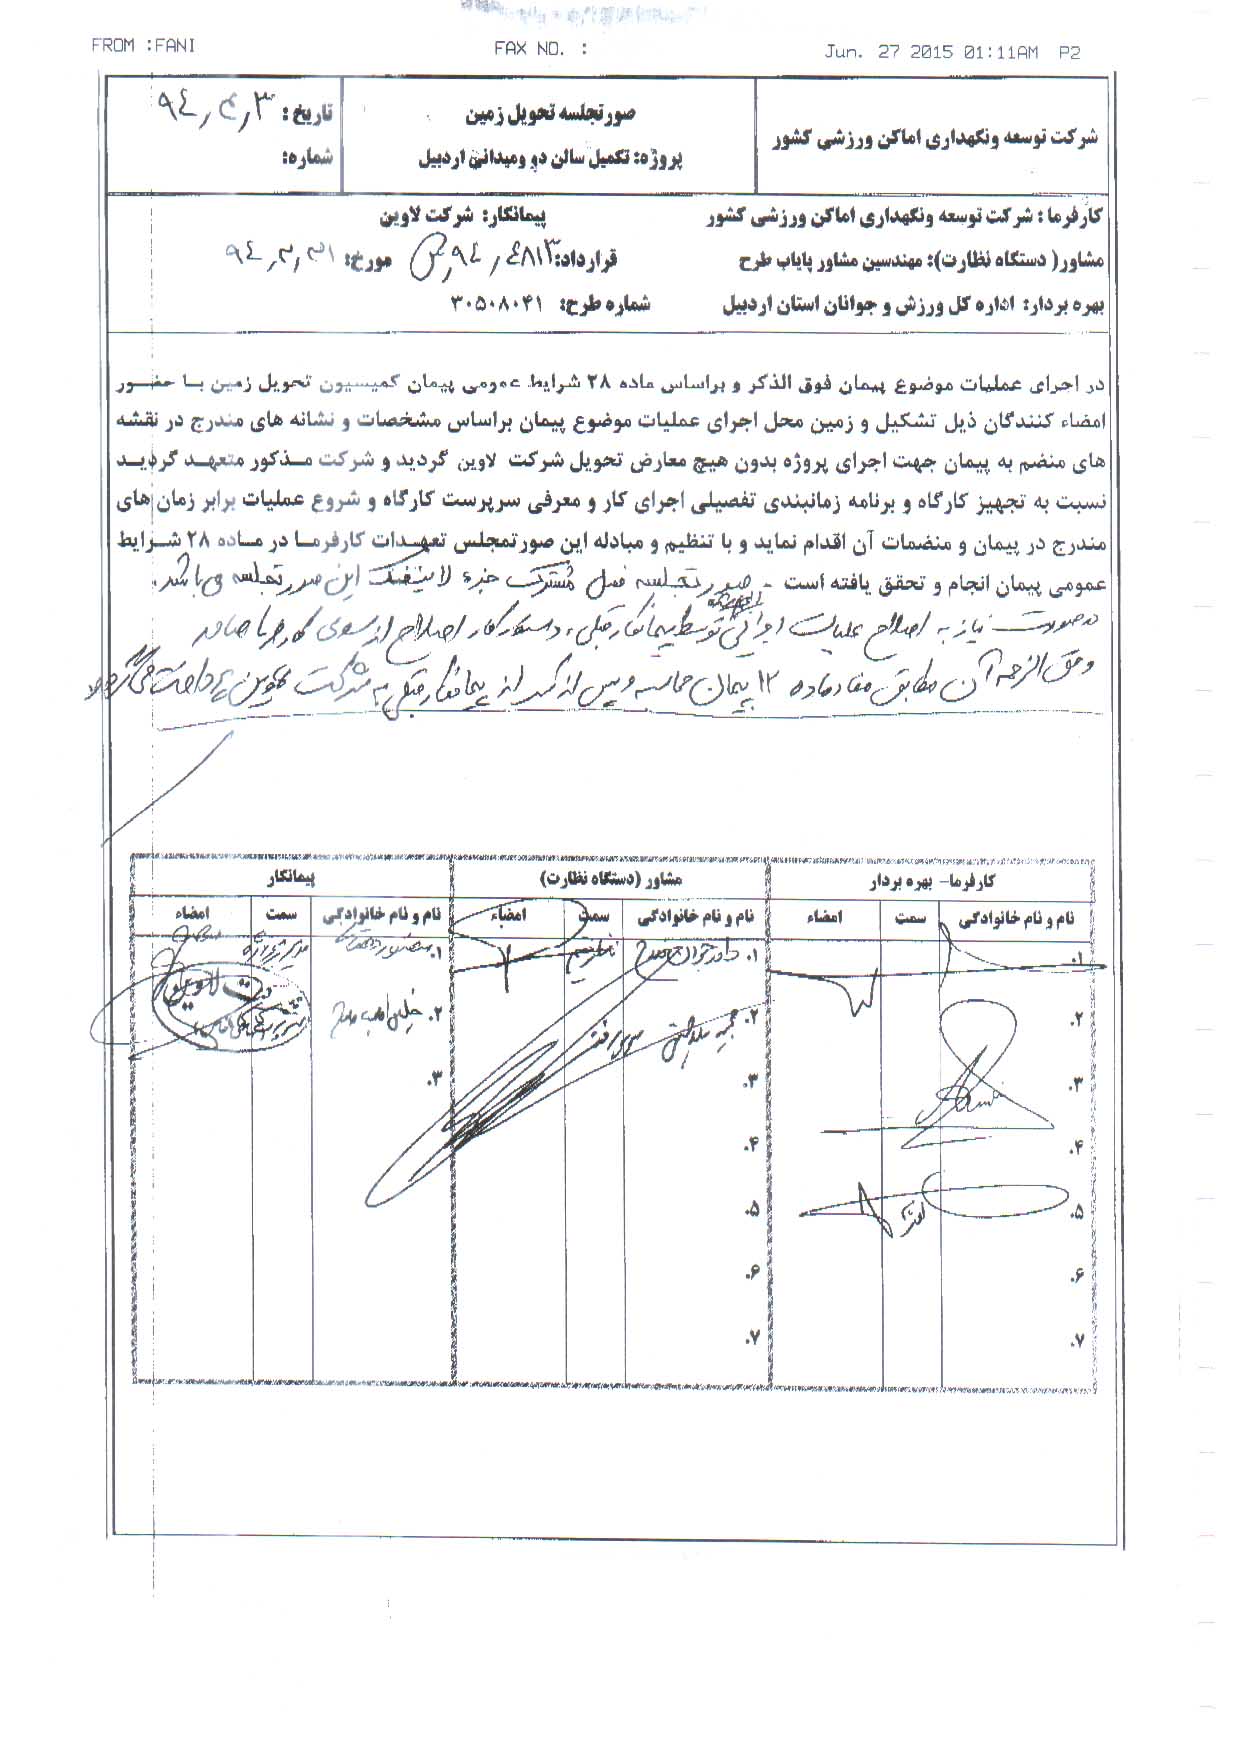 FROM :FANI FAX NO. : Jun. 27 2015 01:11AM P2
شرکت توسعه ونگهداری اماکن ورزشی کشور
صورتجلسه تحویل زمین
پروژه: تکمیل سالن دو ومیدانی اردبیل
تاریخ: ۹٤,٤,۳
شماره:
کارفرما : شرکت توسعه ونگهداری اماکن ورزشی کشور پیمانکار: شرکت لاوین
مشاور( دستگاه نظارت): مهندسین مشاور پایاب طرح قرارداد: مورخ: ۹٤,۳,۳۱
بهره بردار: اداره کل ورزش و جوانان استان اردبیل شماره طرح: ۳۰۵۰۸۰۴۱
در اجرای عملیات موضوع پیمان فوق الذکر و براساس ماده ۲۸ شرایط عمومی پیمان کمیسیون تحویل زمین با حضور
امضاء کنندگان ذیل تشکیل و زمین محل اجرای عملیات موضوع پیمان براساس مشخصات و نشانه های مندرج در نقشه
های منضم به پیمان جهت اجرای پروژه بدون هیچ معارض تحویل شرکت لاوین گردید و شرکت مذکور متعهد گردید
نسبت به تجهیز کارگاه و برنامه زمانبندی تفصیلی اجرای کار و معرفی سرپرست کارگاه و شروع عملیات برابر زمان های
مندرج در پیمان و منضمات آن اقدام نماید و با تنظیم و مبادله این صورتمجلس تعهدات کارفرما در ماده ۲۸ شرایط
عمومی پیمان انجام و تحقق یافته است - صورتجلسه فصل مشترک جزء لاینفک این صورتجلسه می باشد.
درصورت نیاز به اصلاح عملیات اجرائی توسط پیمانکار قبلی، دستورکار اصلاح از سوی کارفرما صادر
و حق الزحمه آن مطابق مفاد ماده ۱۲ پیمان محاسبه و پس از کسر از پیمانکار قبلی به شرکت لاوین پرداخت می گردد
کارفرما- بهره بردار مشاور (دستگاه نظارت) پیمانکار
نام و نام خانوادگی سمت امضاء نام و نام خانوادگی سمت امضاء نام و نام خانوادگی سمت امضاء
۱. ۱. ۱.
۲. ۲. ۲.
۳. ۳. ۳.
۴. ۴.
۵. ۵.
۶. ۶.
۷. ۷.